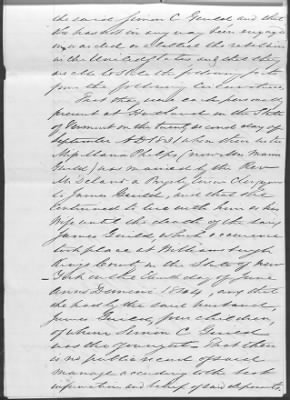 the said Simon C. Guild and that
he has not in any way been engaged
in or aided or abetted the rebellion
in the United States and that they
are able to state the following facts
from the following circumstances
That they were each personally
present at Hartland in the State
of Vermont on the twenty second day of
September A D 1831 when Miss
Maria Phelps (now Maria
Guild) was married by the Rev
a Presbyterian Clergyman
to James Guild, and that she
continued to live with him as his
wife until the death of the said
James Guild, which occurred
took place at Williamsburgh
Kings County in the State of New
York on the tenth day of June
Anno Domini 1844, and that
she had by the said husband,
James Guild, four children,
of whom Simon C. Guild
was the youngest. That there
is no public record of said
marriage according to the best
information and belief of said deponents,